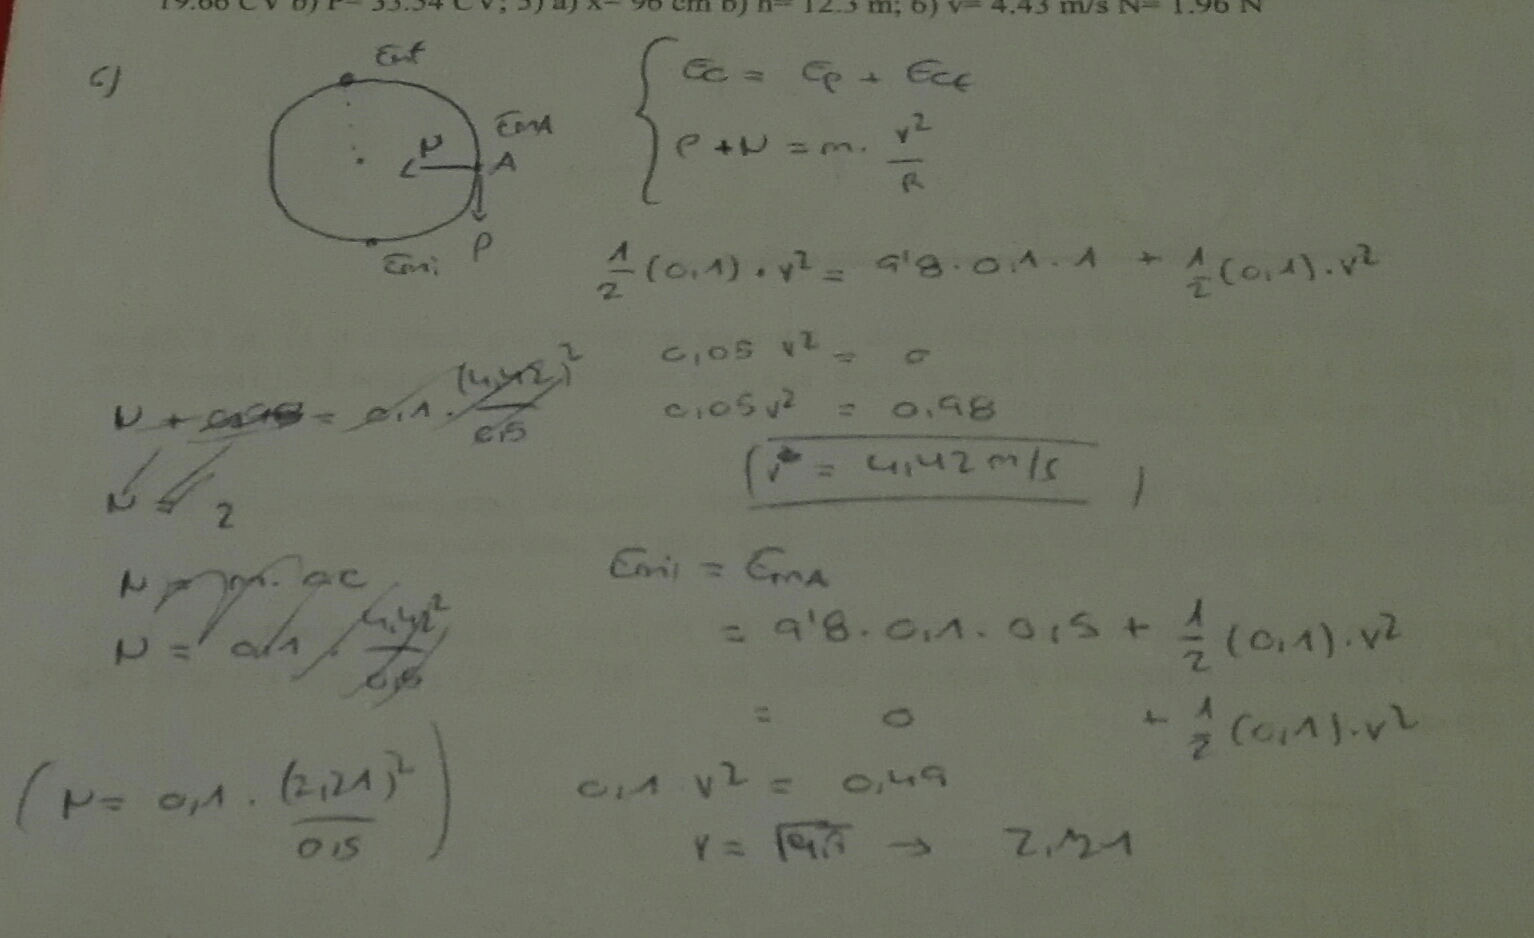 19.66 CV b) P= 33.34 CV; 5) a) x= 96 cm b) h= 12.3 m; 6) v= 4.43 m/s N= 1.96 N
6)
Emf
EmA
N
A
P
Emi
Ec = Ep + Ecf
P + N = m . v²/R
1/2 (0,1) . v² = 9'8 . 0,1 . 1 + 1/2 (0,1) . v²
0,05 v² = 0
0,05 v² = 0,98
v = 4,42 m/s
N + = 0,1 . (4,42)²/0,5
N = 2
N = m . ac
N = 0,1 . 4,42²/0,5
Emi = EmA
= 9'8 . 0,1 . 0,5 + 1/2 (0,1) . v²
= 0 + 1/2 (0,1) . v²
0,1 v² = 0,49
v = √4,9 → 2,21
(N = 0,1 . (2,21)²/0,5)